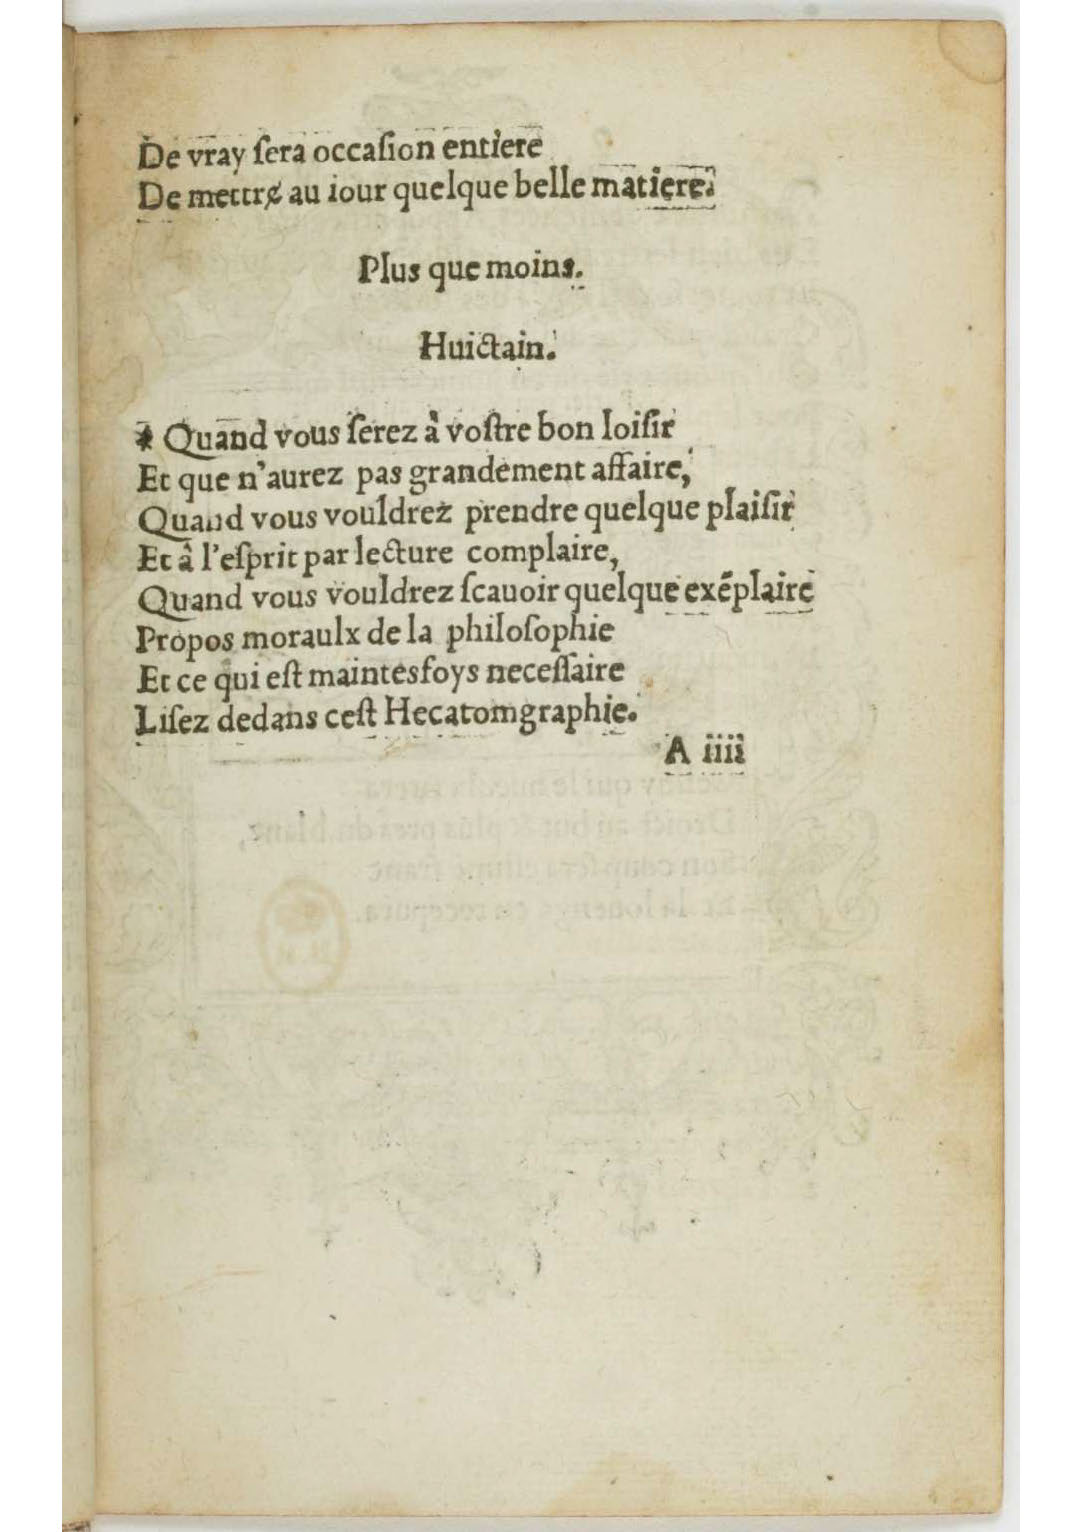 De vray ſera occaſion entiere
De mettre au iour quelque belle matiere.
Plus que moins.
Huictain.
Quand vous ſerez à voſtre bon loiſir
Et que n'aurez pas grandement affaire,
Quand vous vouldrez prendre quelque plaiſir
Et à l'eſprit par lecture complaire,
Quand vous vouldrez ſcauoir quelque exẽplaire
Propos moraulx de la philoſophie
Et ce qui eſt maintesfoys neceſſaire
Liſez dedans ceſt Hecatomgraphie.
A iiii